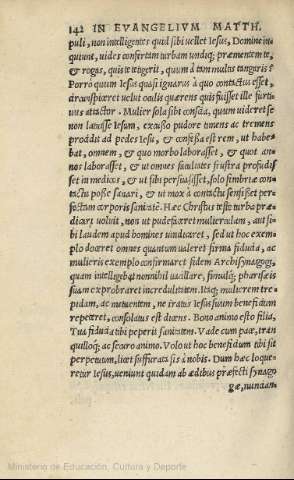 142 IN EVANGELIVM MATTH.
puli, non intelligentes quid sibi uellet Iesus, Domine in
quiunt, uides confertam turbam undiq; prementem te,
& rogas, quis te tetigerit, quum à tam multis tangaris?
Porro quum Iesus quasi ignarus à quo contactus esset,
circumspiceret uelut oculis quærens quis fuisset ille furti
uus attactor. Mulier sola sibi conscia, quum uideret se
non latuisse Iesum, excusso pudore timens ac tremens
procidit ad pedes Iesu, & confessa est rem, ut habe
bat, omnem, & quo morbo laborasset, & quot an
nos laborasset, & ut omnes facultates frustra profudis
set in medicos, & ut sibi persuasisset, solo fimbriæ con
tactu posse sanari, & ut mox à contactu sensisset per
fectam corporis sanitatē. Hæc Christus teste turba præ
dicari uoluit, non ut pudefaceret mulierculam, aut si
bi laudem apud homines uindicaret, sed ut hoc exem
plo doceret omnes quantum ualeret firma fiducia, ac
mulieris exemplo confirmaret fidem Archisynagogi,
quam intelligebat nonnihil uacillare, simulq; pharisæis
suam exprobraret incredulitatem. Itaq; mulierem tre
pidam, ac metuentem, ne iratus Iesus suum beneficium
repeteret, consolatus est dicens. Bono animo esto filia,
Tua fiducia tibi peperit sanitatem. Vade cum pace, tran
quilloq; ac securo animo. Volo ut hoc beneficium tibi sit
perpetuum, licet suffuratæ sis à nobis. Dum hæc loque
retur Iesus, ueniunt quidam ab ædibus præfecti synago
gæ, nuncian
Ministerio de Educación, Cultura y Deporte